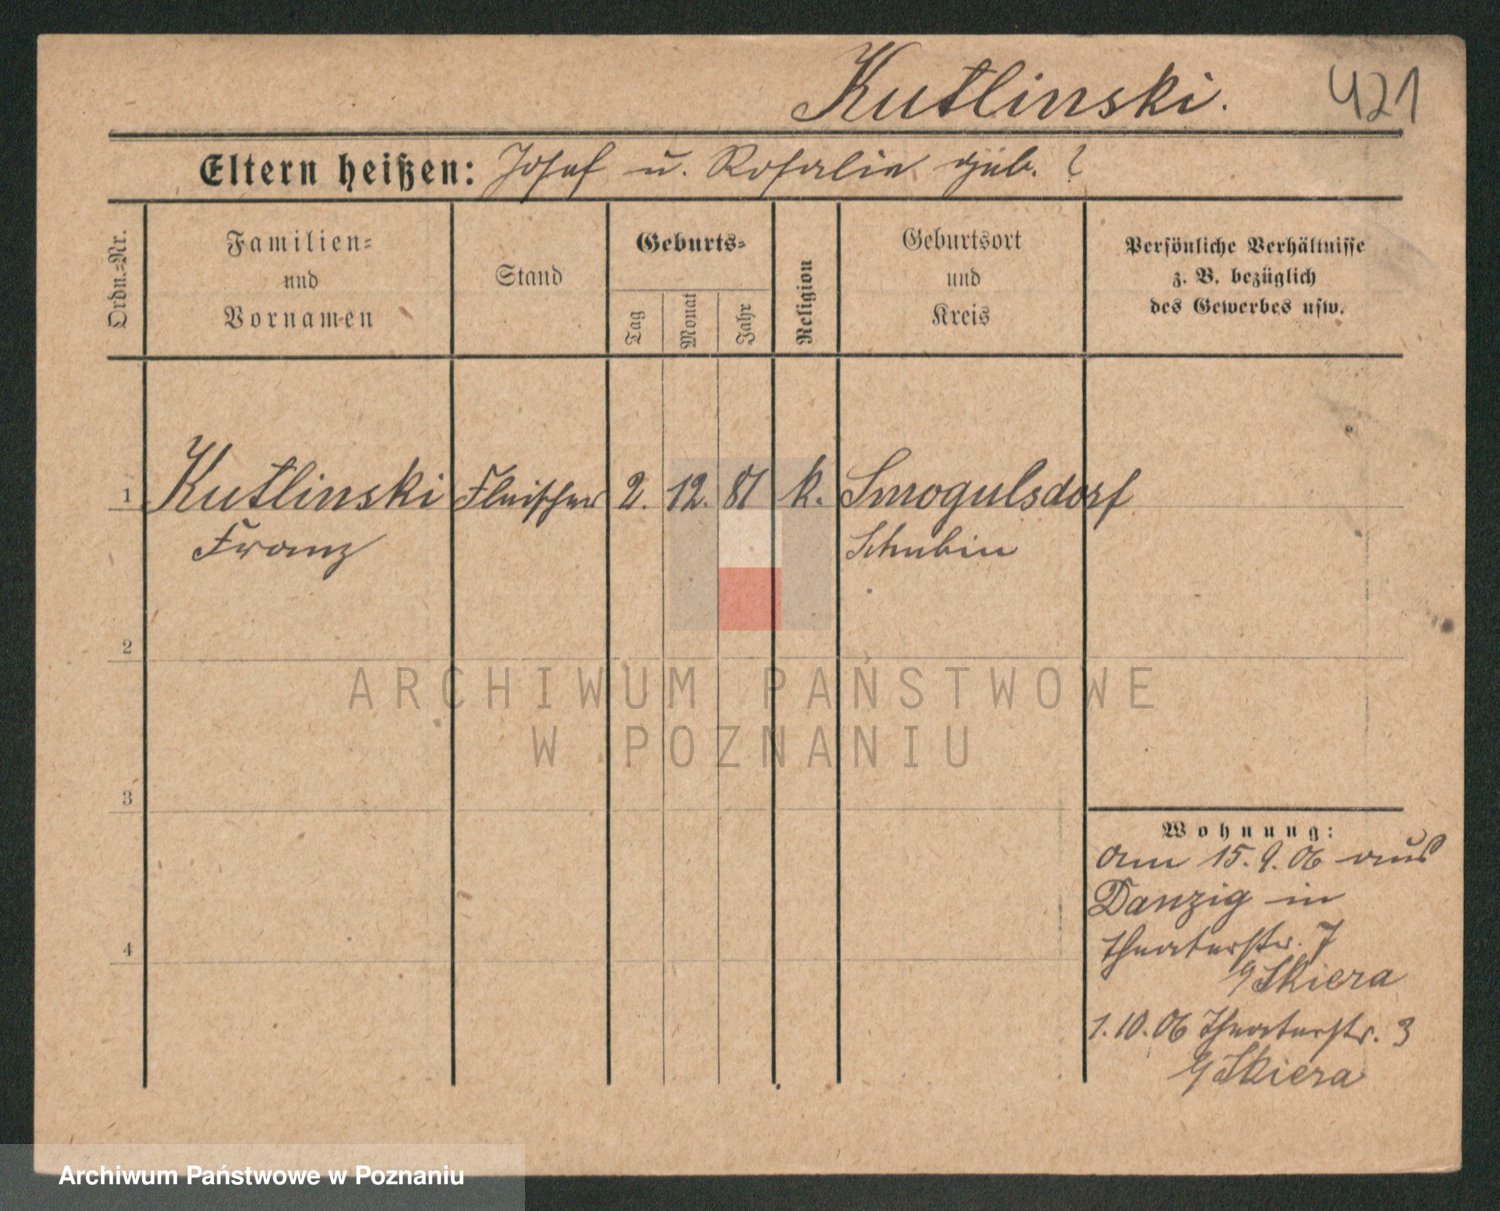 Kutlinski.
421
Eltern heißen: Josef u. Rosalie geb. ?
Ordn.-Nr.
Familien-
und
Vornamen
Stand
Geburts-
Tag
Monat
Jahr
Religion
Geburtsort
und
Kreis
Persönliche Verhältnisse
z. B. bezüglich
des Gewerbes usw.
1 Kutlinski Fleischer 2. 12. 81 k. Smogulsdorf
Franz Schubin
2
3
4
Wohnung:
am 15. 9. 06 aus
Danzig in
Theaterstr. 7
Skiera
1. 10. 06 Theaterstr. 3
Skiera
ARCHIWUM PAŃSTWOWE
W POZNANIU
Archiwum Państwowe w Poznaniu